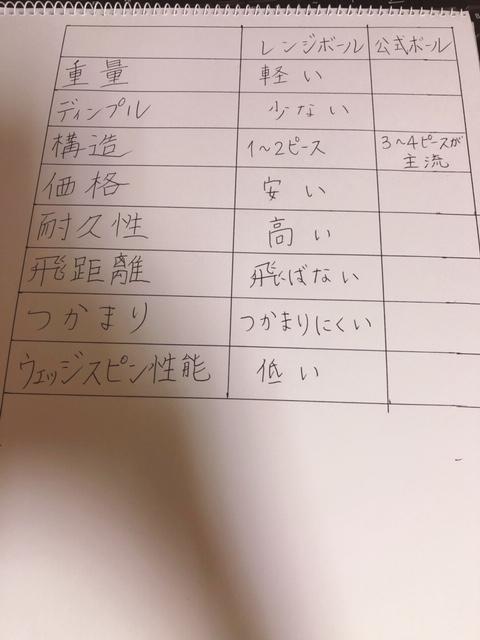 レンジボール 公式ボール
重量 軽い
ディンプル 少ない
構造 1〜2ピース 3〜4ピースが
主流
価格 安い
耐久性 高い
飛距離 飛ばない
つかまり つかまりにくい
ウェッジスピン性能 低い